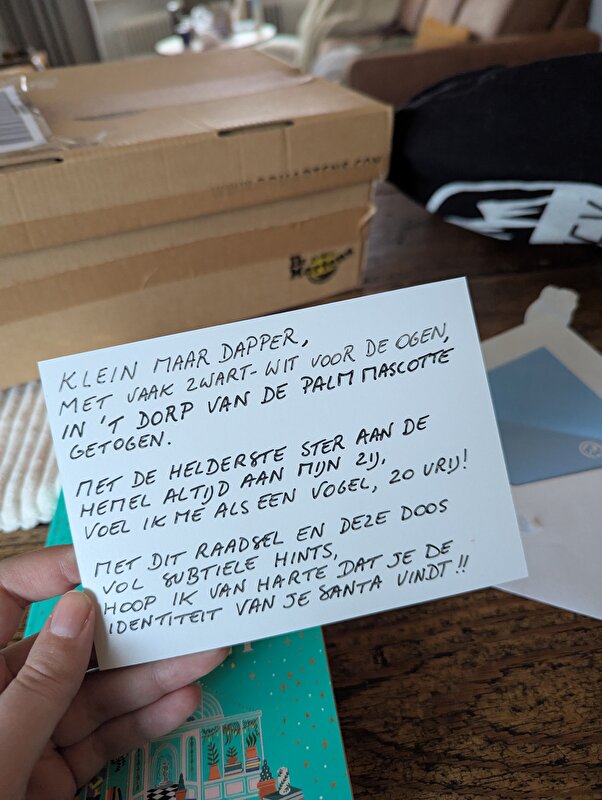 Dr. Martens
KLEIN MAAR DAPPER,
MET VAAK ZWART-WIT VOOR DE OGEN,
IN 'T DORP VAN DE PALM MASCOTTE
GETOGEN.
MET DE HELDERSTE STER AAN DE
HEMEL ALTIJD AAN MIJN ZIJ,
VOEL IK ME ALS EEN VOGEL, ZO VRIJ!
MET DIT RAADSEL EN DEZE DOOS
VOL SUBTIELE HINTS,
HOOP IK VAN HARTE DAT JE DE
IDENTITEIT VAN JE SANTA VINDT!!